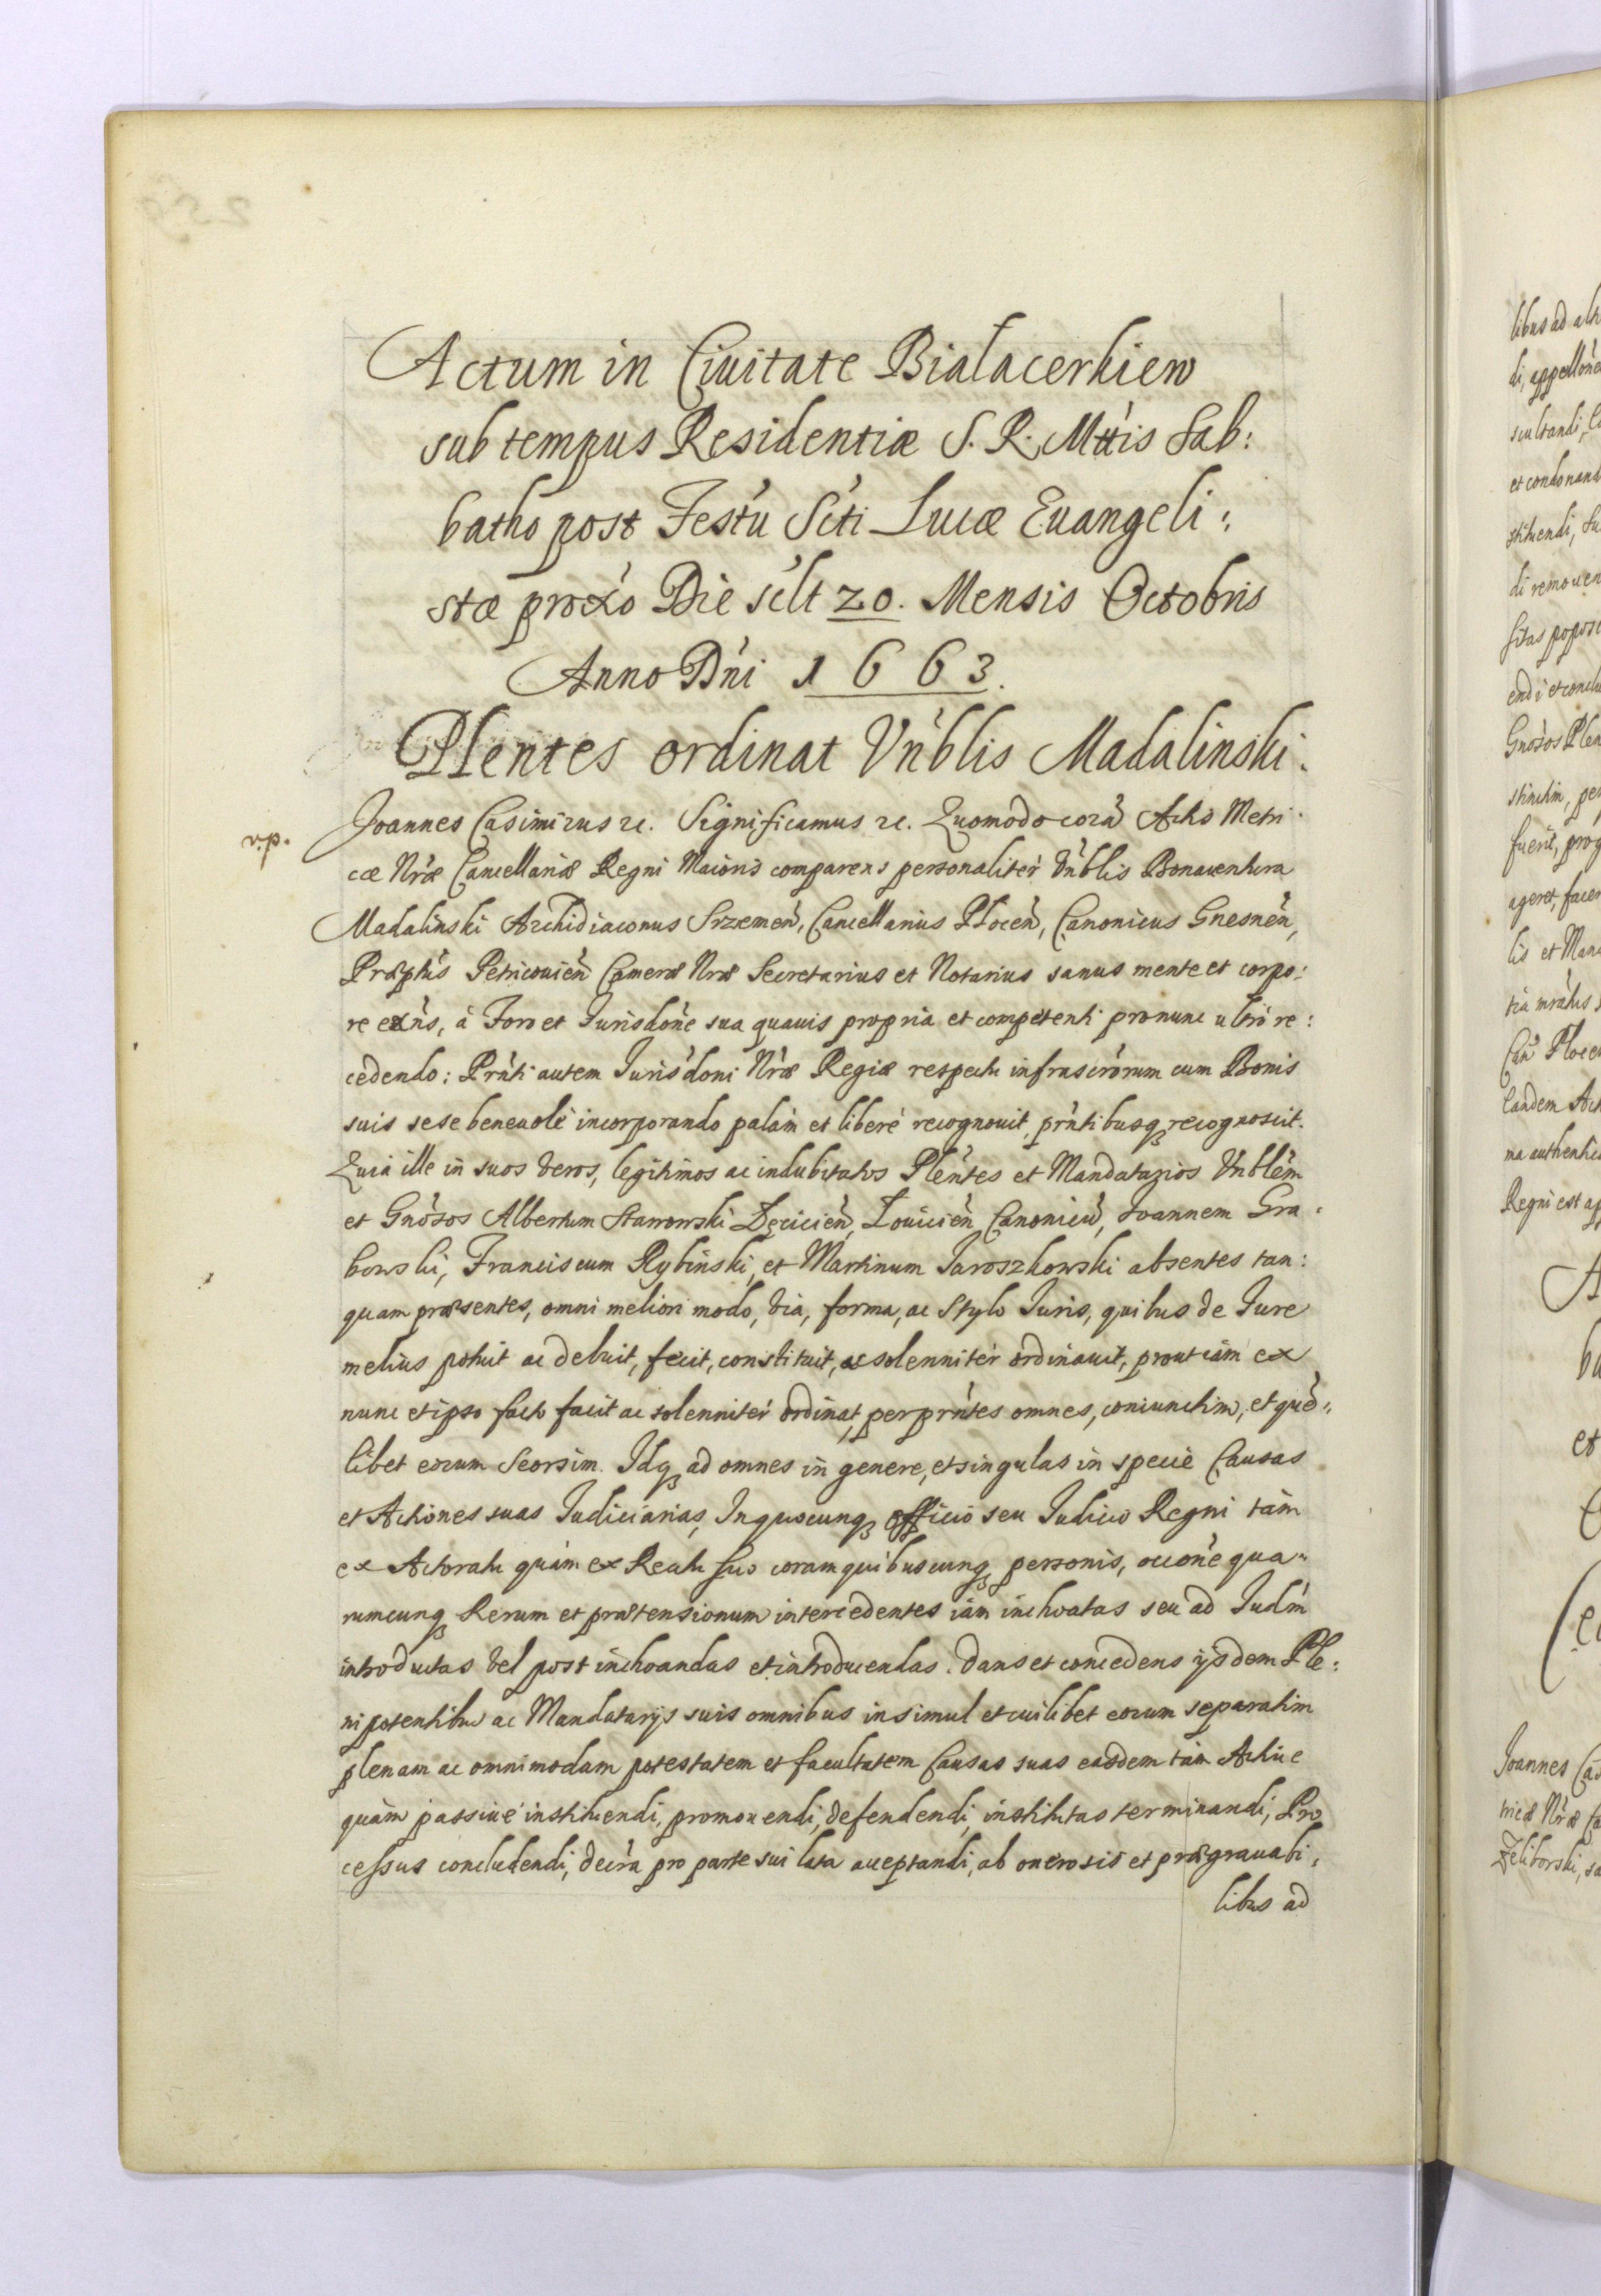 Actum in Ciuitate Białacerkiew
sub tempus Residentiæ S. R. Mttis Sab:
batho post Festù Scti Lucæ Euangeli:
stæ proxò Die scłt 20. Mensis Octobris
Anno Dni 1663.
Plentes ordinat Vnblis Madalinski.
v.p.
Joannes Casimirus rc. Significamus rc. Quomodo corà Actis Metri
cæ Nræ Cancellariæ Regni Maioris comparens personalitèr Vnblis Bonauentura
Madalinski Archidiaconus Srzemen, Cancellarius Płocen, Canonicus Gnesnen,
Præptus Petricouien Cameræ Nræ Secretarius et Notarius sanus mente et corpo:
re exns, à Foro et Jurisdone sua quauis propria et competenti pro nunc ultrò re:
cèdendo: Prnti autem Jurisdoni Nræ Regiæ respectu infrascrorum cum Bonis
suis sese beneuolè incorporando palàm et liberè recognouit, prntibusq recognoscit.
Quia ille in suos veros, legitimos ac indubitatos Plentes et Mandatarios Vnblem
et Gnosos Albertum Stawowski Łęcicien, Łouicien Canonicu, Joannem Gra:
bowski, Franciscum Rybinski, et Martinum Jaroszkowski absentes tan:
quam præsentes, omni meliori modo, via, forma, ac Stylo Juris, quibus de Jure
melius potuit ac debuit, fecit, constituit, ac solennitèr ordinauit, prout iàm ex
nunc et ipso facto facit ac solennitèr ordinat, per prntes omnes, coniunctim, et què:
libet eorum Seorsim. Idq ad omnes in genere, et singulas in specie Causas
et Actiones suas Judiciarias, In quocunq officio seu Judicio Regni tàm
ex Actoratu quàm ex Reatu suo coram quibuscunq personis, occone qua:
rumcunq Rerum et prætensionum intercedentes iàm inchoatas seu ad Judm
introductas vel post inchoandas et introducendas. Dans et concedens ijsdem Ple:
nipotentibus ac Mandatarijs suis omnibus insimul et cuilibet eorum separatim
plenam ac omnimodam potestatem et facultatem Causas suas easdem tàm Actiue
quàm passiuè instituendi, promouendi, defendendi, institutas terminandi, Pro
cessus concludendi, decra pro parte sui lata acceptandi, ab onerosis et prægrauabi:
libus ad